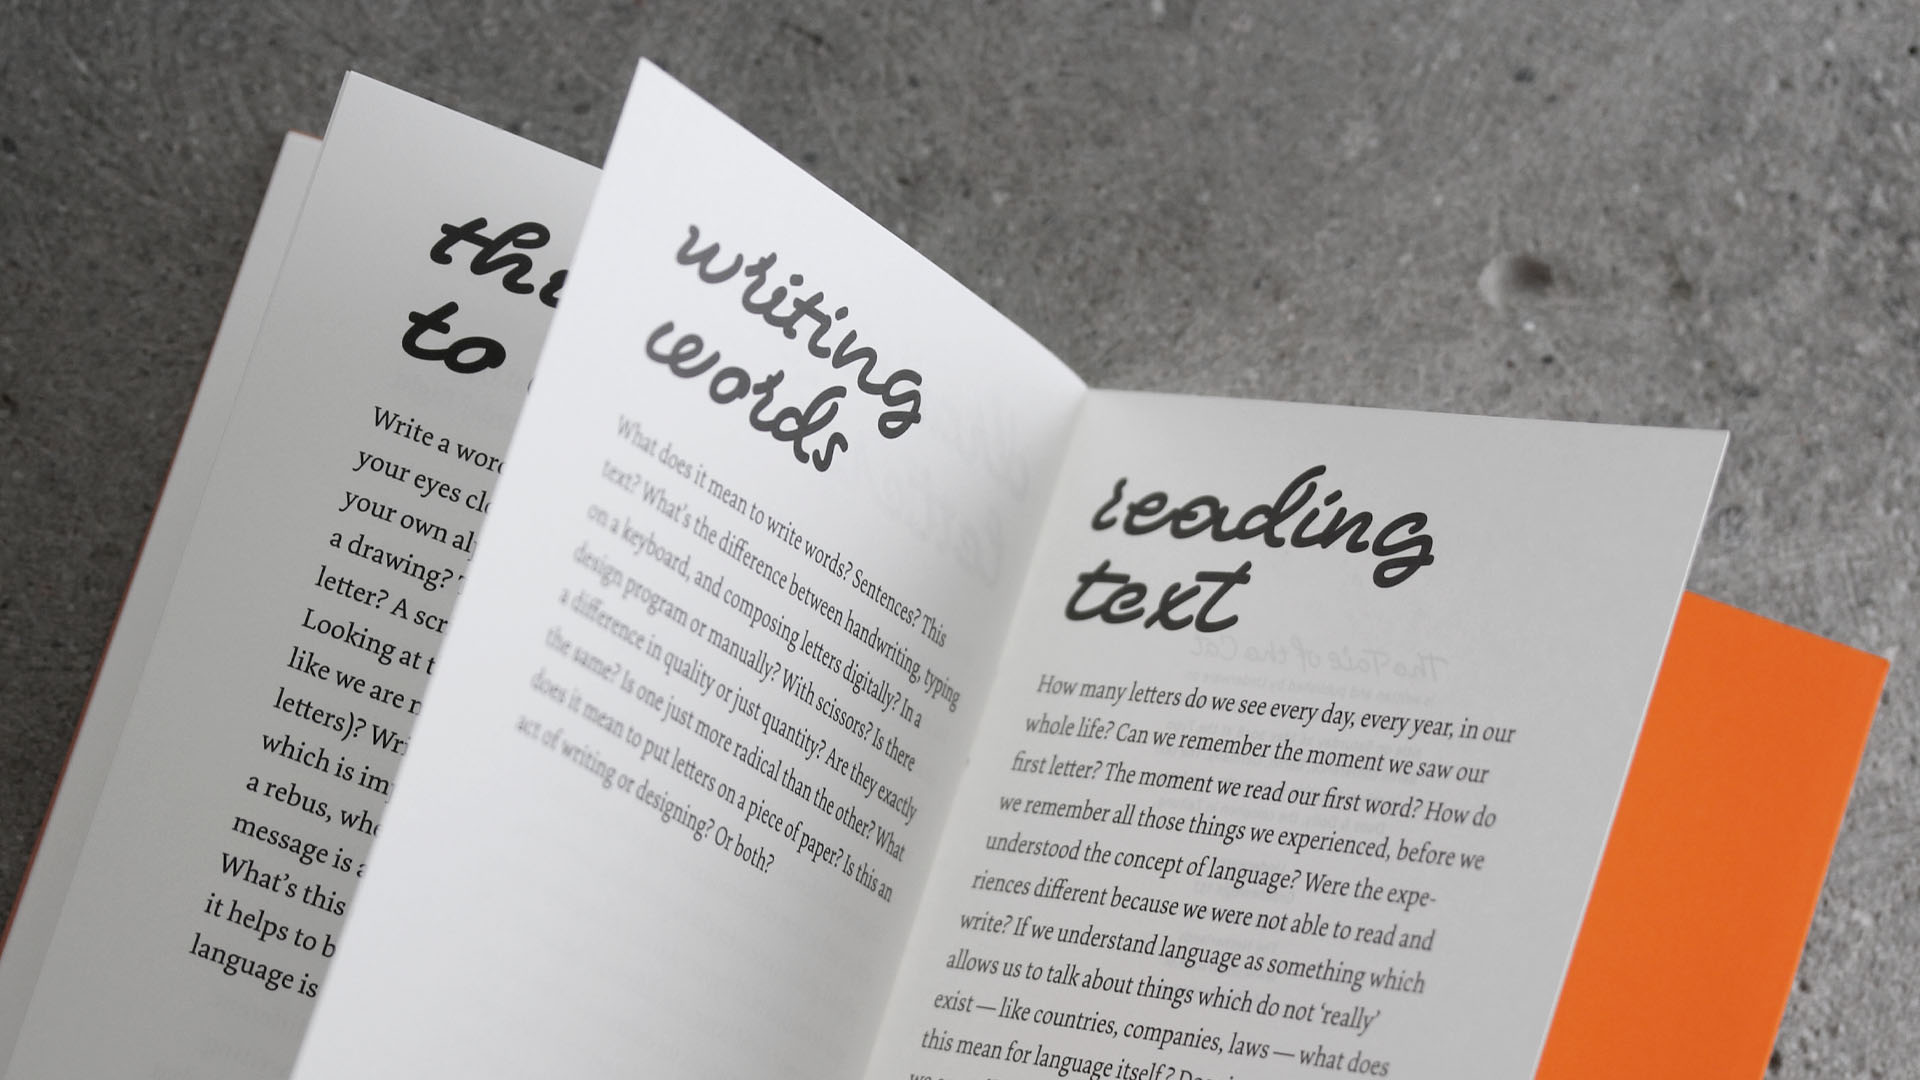 to
Write a
your eyes
your own
a drawing?
letter? A
Looking at
like we are
letters)?
which is
a rebus,
message is
What's this
it helps to
language is
writing
words
What does it mean to write words? Sentences? This
text? What's the difference between handwriting, typing
on a keyboard, and composing letters digitally? In a
design program or manually? With scissors? Is there
a difference in quality or just quantity? Are they exactly
the same? Is one just more radical than the other? What
does it mean to put letters on a piece of paper? Is this an
act of writing or designing? Or both?
reading
text
How many letters do we see every day, every year, in our
whole life? Can we remember the moment we saw our
first letter? The moment we read our first word? How do
we remember all those things we experienced, before we
understood the concept of language? Were the expe-
riences different because we were not able to read and
write? If we understand language as something which
allows us to talk about things which do not ‘really’
exist — like countries, companies, laws — what does
this mean for language itself?